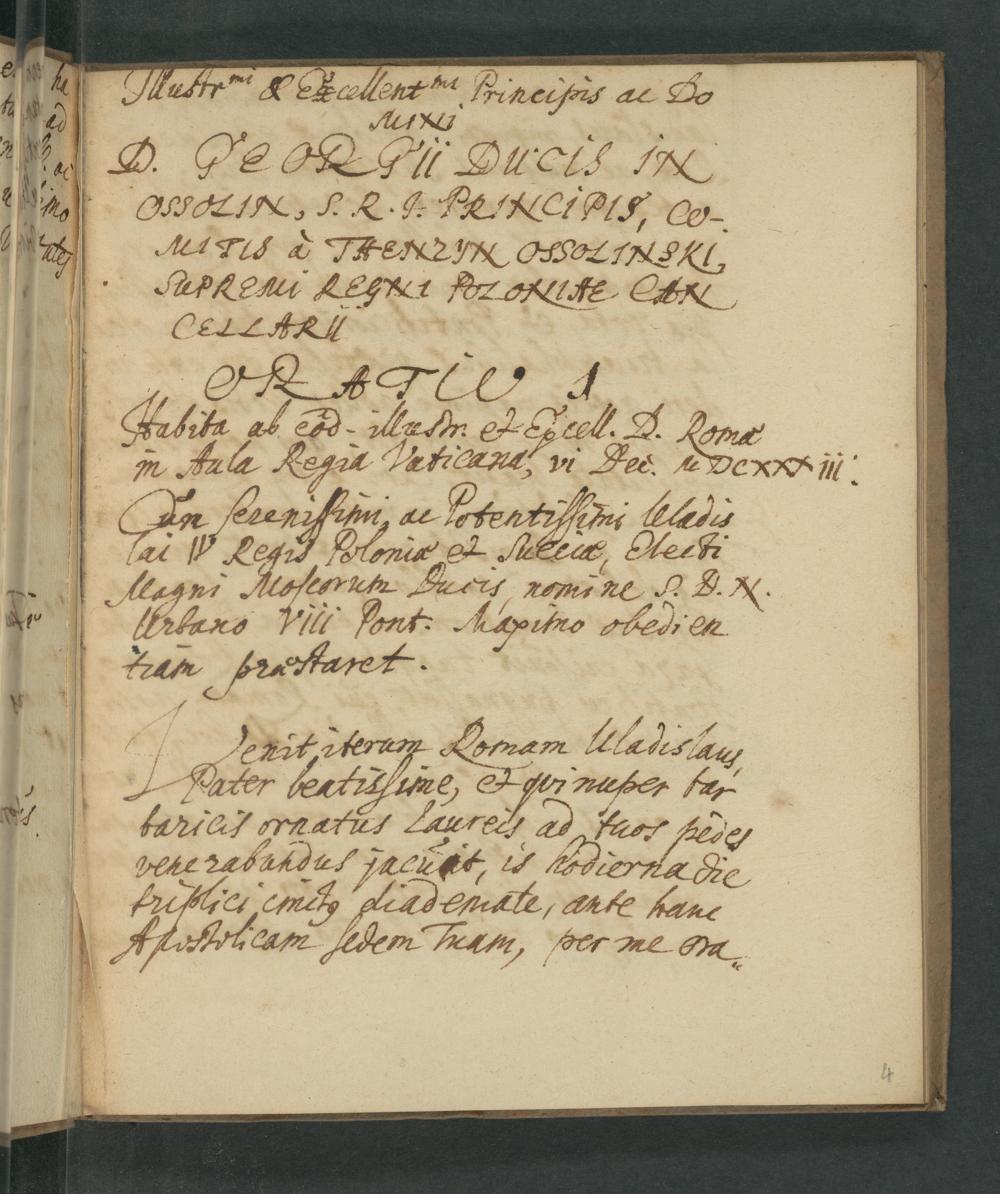 Illustr^mi & Excellent^mi Principis ac Do
MINI
D. GEORGII DUCIS IN
OSSOLIN, S. R. I. PRINCIPIS, CO-
MITIS à THENZYN OSSOLINSKI,
SUPREMI REGNI POLONIAE CAN
CELLARII
ORATIO I
Habita ab eod- illustr. et Excell. D. Romæ
in Aula Regia Vaticana, vi Dec. MDCXXXiii.
Cum Serenissimi, ac Potentissimi Uladis
lai IV Regis Poloniæ et Sueciæ, Electi
Magni Moscorum Ducis, nomine S. D. N.
Urbano Viii Pont. Maximo obedien
tiam præstaret.
Venit iterum Romam Uladislaus,
Pater beatissime, et qvi nuper bar
baricis ornatus Laureis ad tuos pedes
venerabundus jacuit, is hodierna die
triplici cinctꝯ diademate, ante hanc
Apostolicam sedem Tuam, per me ora„
4